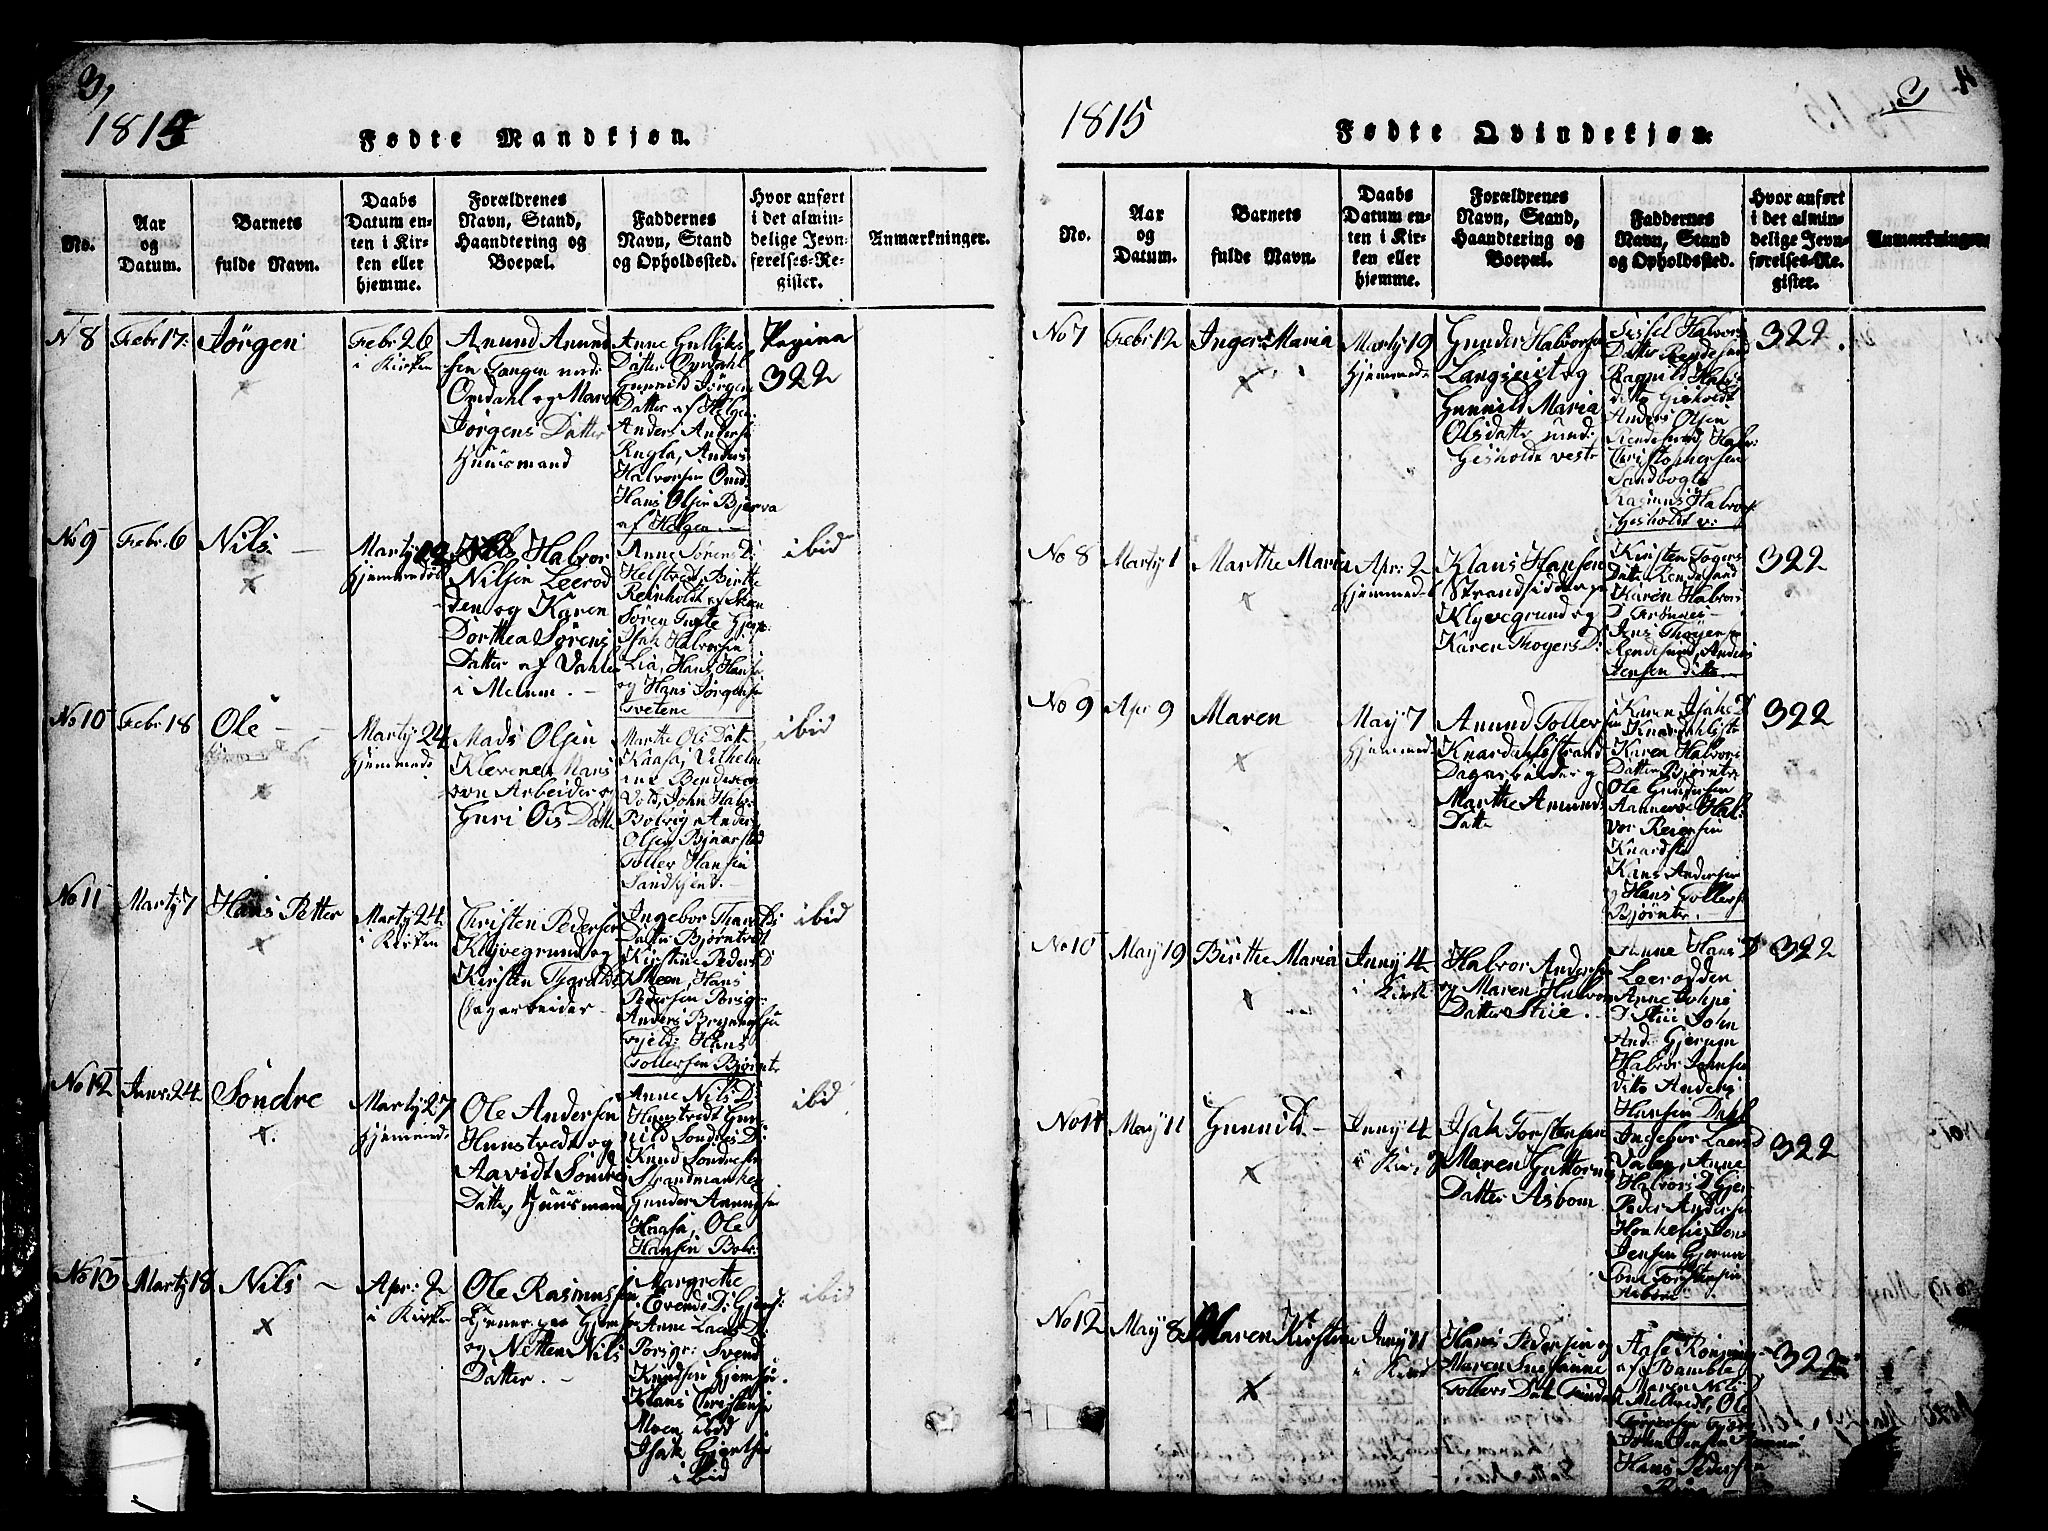 3,
1815
Fødte Mandkjøn.
No.
Aar
og
Datum.
Barnets
fulde Navn.
Daabs
Datum en-
ten i Kir-
ken eller
hjemme.
Forældrenes
Navn, Stand,
Haandtering og
Boepæl.
Faddernes
Navn, Stand
og Opholdssted.
Hvor anført
i det almin-
delige Jevn-
førelses-Re-
gister.
Anmærkninger.
N 8
Febr 17:
Jørgen
Febr 26
i Kirken
Anund Anund
sen Tangen und:
Omdahl og Maren
Jørgens Datter
Huusmand
Anne Gulliks
Datter Omdahl
Gunnild Jørgen
Datter af Helgen
Anders Anderse
Rugla, Anders
Halvorsen Omd:
Hans Olsen Bjerva
af Helgen. —
Pagina
322
No 9
Febr: 6
Nils —
Marty 19
Hjemmedøb
Halvor
Nilsen Leerod
den og Karen
Dorthea Sørens
Datter af Dahle
i Melum. —
Anne Sørens D:
Helstred, Birthe
Reinholdt af Skien
Søren Tufte Hjerp:
Isak Halvorsen
Lia, Hans Hanse
og Hans Jørgense
Tvetene
ibid
No 10
Febr 18
Ole —
Marty 24
Hjemmed:
Mads Olsen
Kleven
Arbeider og
Guri Ols Datte
Marthe Ols Datt
Kaasa, Vilhelm
ine Bendixen
Vold, John Halv:
Bobrig Anders
Olsen Bjaarsted
Toller Hansen
Sandkjend. —
ibid
No 11
Marty 7
Hans Petter
Marty 24
i Kirken
Christen Pedersen
Klyvegrund og
Kirsten Thoralds
Dagarbeider —
Ingebor Thar D:
Datter Bjørntvedt
Kirstine Peders D
Skeen, Hans
Pedersen Porsgr:
Anders Brynnelsen
Fjeld: Hans
Tollefsen Bjørntv
ibid
No 12
Janr: 24
Søndre
Marty 27
Hjemmed:
Ole Andersen
Hunstvedt og
Aavidt Søndre
Datter, Huusmand
Anne Nils D:
Hunstvedt Gun
nild Søndres D:
Knud Søndresen
Strandmanken
Gunder Aanonsen
Haasa, Ole
Hansen Bobr:
ibid
No 13
Marty 18
Nils ~
Apr: 2
i Kirken
Ole Rasmussen
Tjener paa Hjem
og Netten Nils
Datter. —
Margrethe
Evends D: Gjems:
Anne Laers D:
Porsgr: Svend
Knudsen Hjemsøe.
Klaus Christense
Moen ibid
Isak Gjertsen
ibid
ibid
3
1815
Fødte Qvindekjøn.
No.
Aar
og
Datum.
Barnets
fulde Navn.
Daabs
Datum en-
ten i Kir-
ken eller
hjemme.
Forældrenes
Navn, Stand,
Haandtering og
Boepæl.
Faddernes
Navn, Stand
og Opholdssted.
Hvor anført
i det almin-
delige Jevn-
førelses-Re-
gister.
Anmærkninger
No 7
Febr: 12
Inger Maria
Marty 19
Hjemmedø
Gunder Halvorsen
Langseist og
Gunnild Maria
Olsdatter und:
Gisholdt vestr
Sissel Halvors
Datter Rendesund
Ragnild Halv:
ditto Gisholdt
Anders Olsen
Rendesund, Halv:
Christophersen
Sandbogla
Rasmus Halvors
Gisholdt v:
322
No 8
Marty 1
Marthe Maria
Apr: 2
Hjemmed
Klaus Hansen
Strandsidder og
Klyvegrund og
Karen Thogers D:
Kirsten Togers
Datter Rendesund
Karen Halvors
Jens Thogersen
Rendesund, Anders
Jensen ditto
322
No 9
Apr 9
Maren
May 7
Hjemmed:
Anund Toller
Knardahlstrand
Dagarbeider og
Marthe Anunds
Datter
Karen Isaks D
Knardahlstr
Karen Halvors
Datter Bjørntv
Ole Gundersen
Aannerød Hal:
vor Reiersen
Knardstr
Hans Andersen
og Hans Tollefs
Bjørntv. —
322
No 10
May 19
Birthe Maria
Juny 4
i Kirk
Halvor Andersen
og Maren Halvors
Datter Stiie. —
Anne Hans D
Leerodden
Anne
D Stii John
And: Gjerugn
Halvor Johnsen
ditto Anders
Hansen Dahl
322
No 11
May 11
Gunnild. —
Juny 4
i Kir
Isak Torstensen
Maren Guttorms
Datter Asbom
Ingebor Laers D
Anne
Halvors D Gjer
Peder Andersen
Jens
Jensen Gjerun
Tone Torstensen
Asbom
322
No 12
May 8
Maren Kirstine
Juny 11
i Kirk
Hans Pedersen og
Maren Susanne
Tollefs Datt
Aase
af Bamble
Maren Nils D
Ole
Hans Pedersen
322